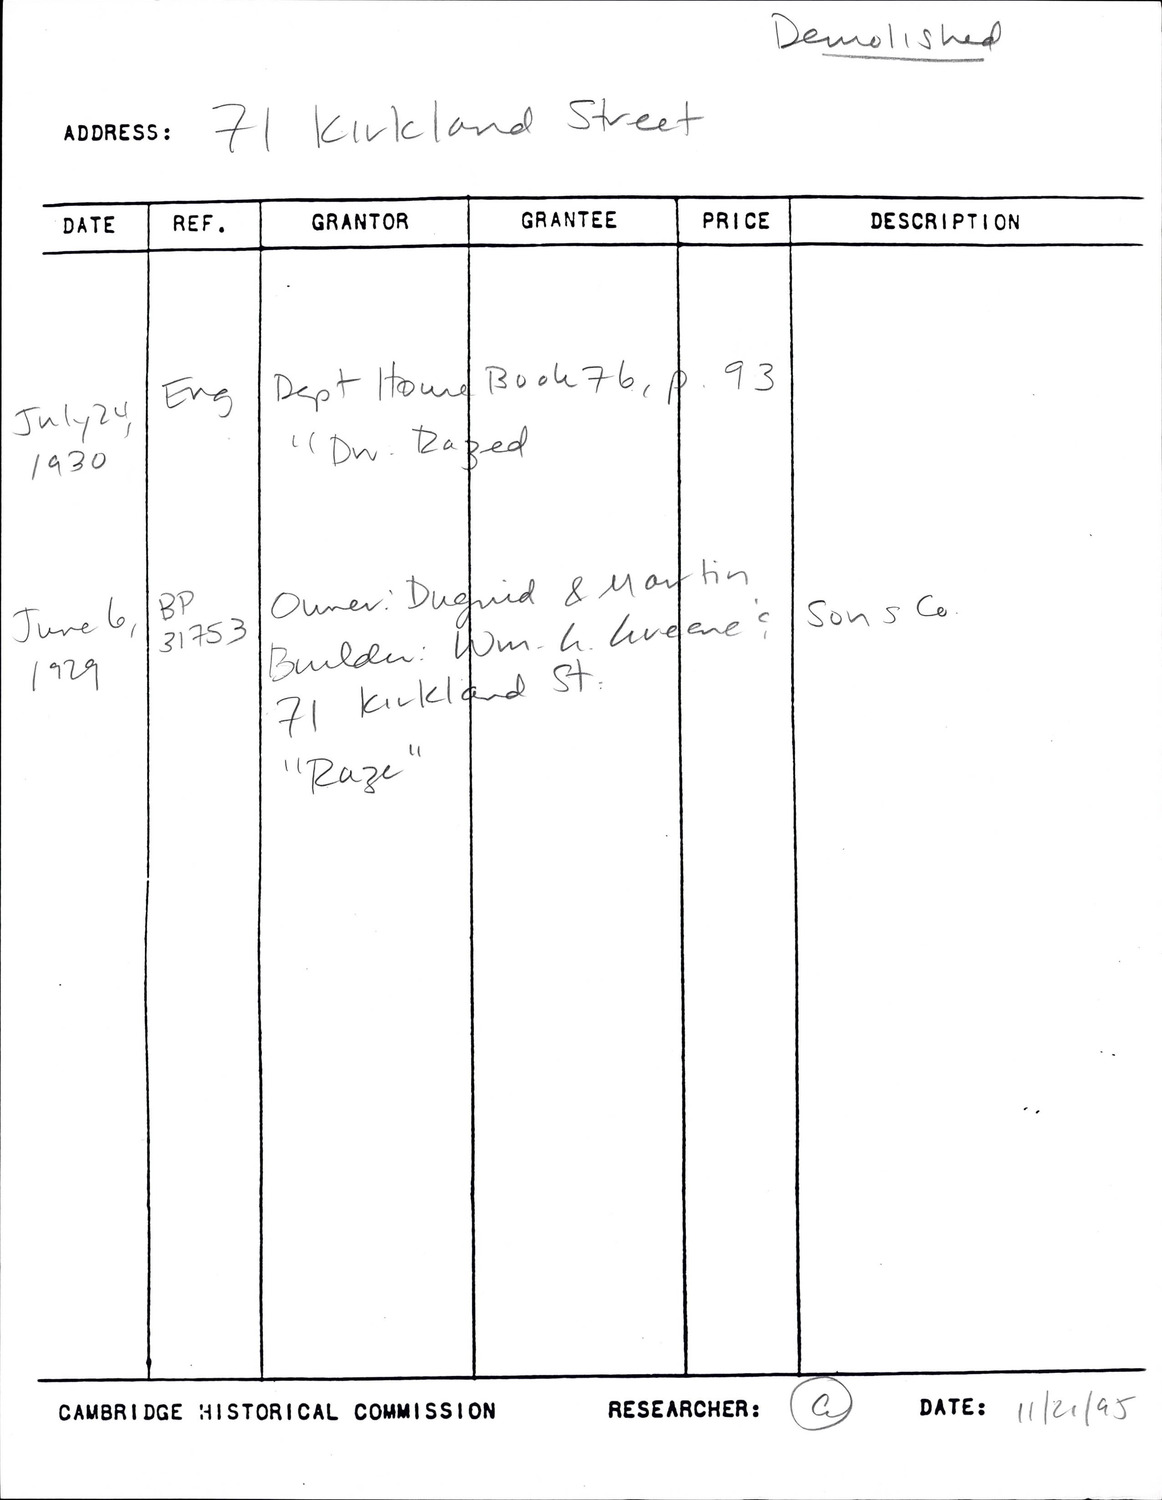 Demolished
ADDRESS: 71 Kirkland Street
DATE REF. GRANTOR GRANTEE PRICE DESCRIPTION
July 24, 1930 Eng Dept House Book 76, p. 93
"Dw. Razed
June 6, 1929 BP 31753 Owner: Duguid & Martin
Builder: Wm. H. Greene & Sons Co.
71 Kirkland St.
"Raze"
CAMBRIDGE HISTORICAL COMMISSION RESEARCHER: DATE: 11/21/95